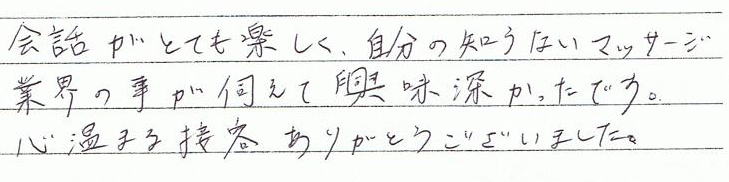 会話がとても楽しく、自分の知らないマッサージ
業界の事が伺えて興味深かったです。
心温まる接客ありがとうございました。